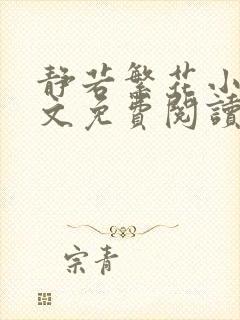 静若繁花小
文免費閱讀
宗青